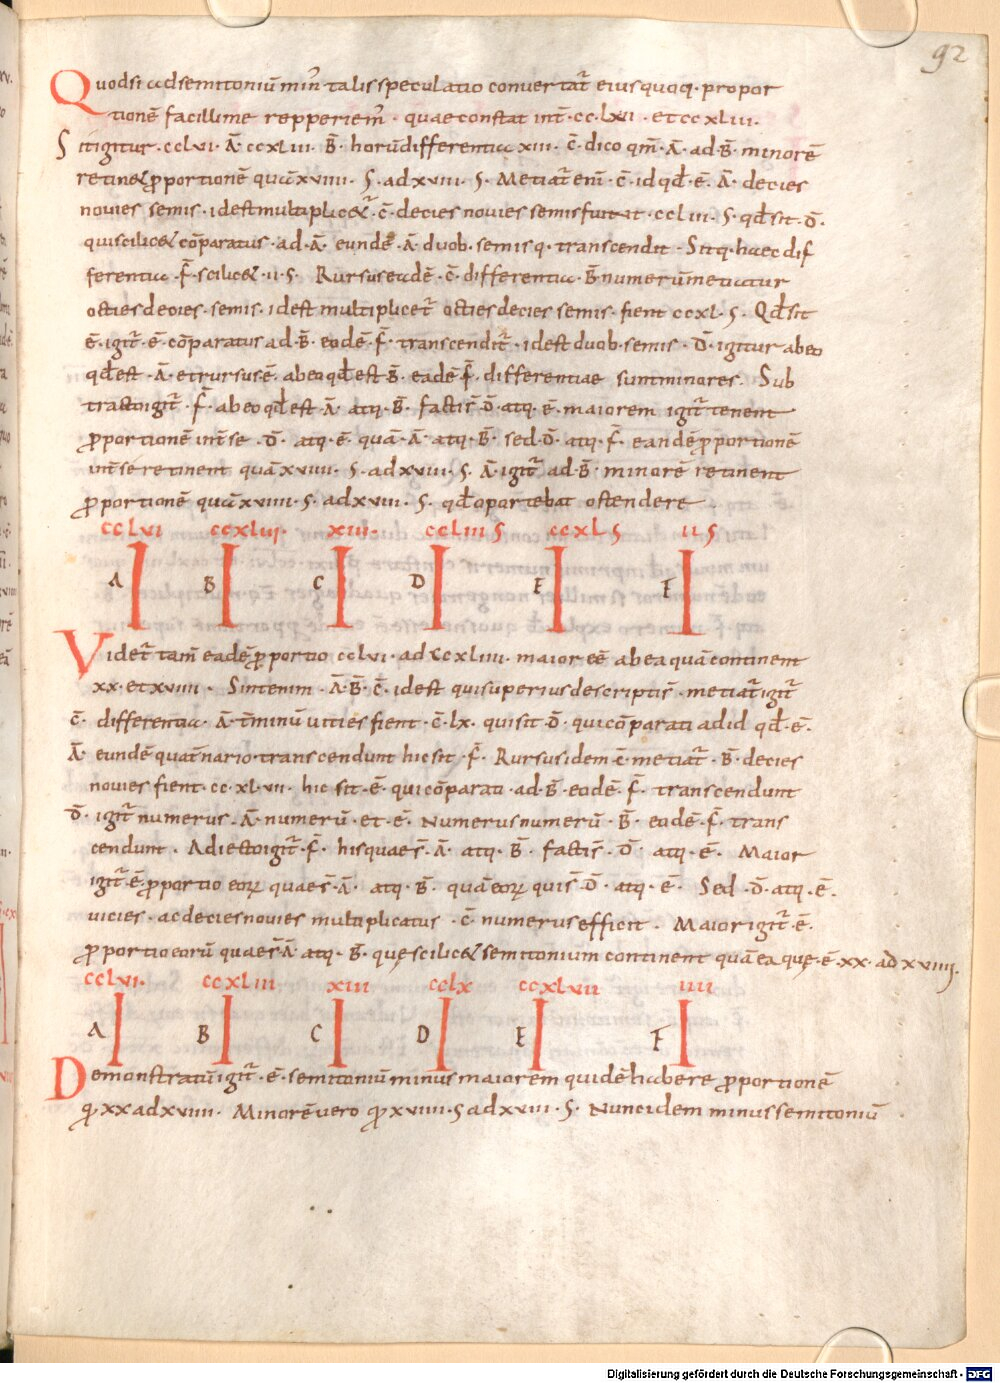 92
Quodsi adsemitoniū min̄ talis speculatio convertat̄ eius quoq· propor
tionē facillime repperiem̄· quae constat int̄· cc·lvi· et ccxliii·
Sitigitur· cclvi· Ā· ccxliii· B̄· horū differentia xiii· C̄· dico qm̄· Ā· ad· B̄· minorē
retinet proportionē quā xviiii· S· ad xviii· S· Metiat̄ eni· C̄· id qd ē· Ā· decies
novies semis· idest multiplicet̄· C̄· decies novies semis fiunt· ccliii· S· qd sit· D̄·
qui scilicet cōparatus· ad· Ā· eundē· Ā· duob· semisq· transcendit· Sitq· haec dif
ferentia· F̄· scilicet· ii· S· Rursus eadē· C̄· differentia· B̄ numerū metiatur
octies decies· semis· idest multiplicet̄ octies decies semis· fient ccxl· S· Qd sit
Ē· igit̄· Ē· cōparatus ad· B̄· eodē· F̄· transcendit̄· idest duob· semis· D̄· igitur ab eo
qd est· Ā· et rursus Ē· ab eo qd est B̄· eadē F̄· differentiae sunt minores· Sub
tracto igit̄· F̄· ab eo qd est· Ā· atq· B̄· factis̄· D̄· atq· Ē· maiorem igit̄ tenent
proportionē int̄ se· D̄· atq· Ē· quā· Ā· atq· B̄· sed· D̄· atq· F̄· eandē proportionē
int̄ se retinent quā xviiii· S· ad xviii· S· Ā· igit̄ ad· B̄· minorē retinent
proportionē quā xviiii· S· ad xviii· S· qd oportebat ostendere
cclvi ccxlvi· xiii· ccliii S ccxl S ii S
A B C D E F
Videt̄ tam̄ eadē proportio cclvi· ad ccxliii· maior eē ab ea quā continent
xx· et xviiii· Sint enim· Ā· B̄· C̄· idest qui superius descriptis̄· metiat̄ igit̄
C̄· differentia· Ā· t̄minū vicies fient· C̄· lx· qui sit· D̄· qui cōparati ad id qd· ē·
Ā· eundē quat̄nario· transcendunt hic sit· F̄· Rursus idem C̄ metiat̄· B̄· decies
novies fient· cc· xl· vii· hic sit· Ē· qui cōparati· ad· B̄· eodē· F̄· transcendunt
D̄· igit̄ numerus· Ā· numerū· et· Ē· Numerus numerū· B̄· eodē· F̄· trans
cendunt· Adiecto igit̄· F̄· his quaes̄· Ā· atq· B̄· factis̄· D̄· atq· Ē· Maior
igit̄· ē· proportio eorꝝ quaes̄· Ā· atq· B̄· quā eorꝝ quis̄· D̄· atq· Ē· Sed· D̄· atq· Ē·
vicies· ac decies novies multiplicatus· C̄· numerus efficit· Maior igit̄· ē·
proportio eorū quaes̄ Ā· atq· B̄· quę scilicet semitonium continent quā ea quę· ē· xx· ad xviiii·
cclvi· ccxliii xiii cclx ccxlvii iiii
A B C D E F
Demonstratū igit̄· ē· semitoniū minus maiorem quidē habere proportionē
q̄· xx ad xviiii· Minorē vero q̄ xviiii· S ad xviii· S· Nunc idem minus semitoniū
Digitalisierung gefördert durch die Deutsche Forschungsgemeinschaft - DFG